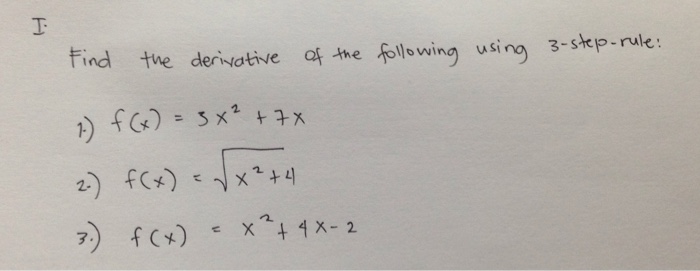 I.
Find the derivative of the following using 3-step-rule:
1.) f(x) = 3x² + 7x
2.) f(x) = √x²+4
3.) f(x) = x²+ 4x-2